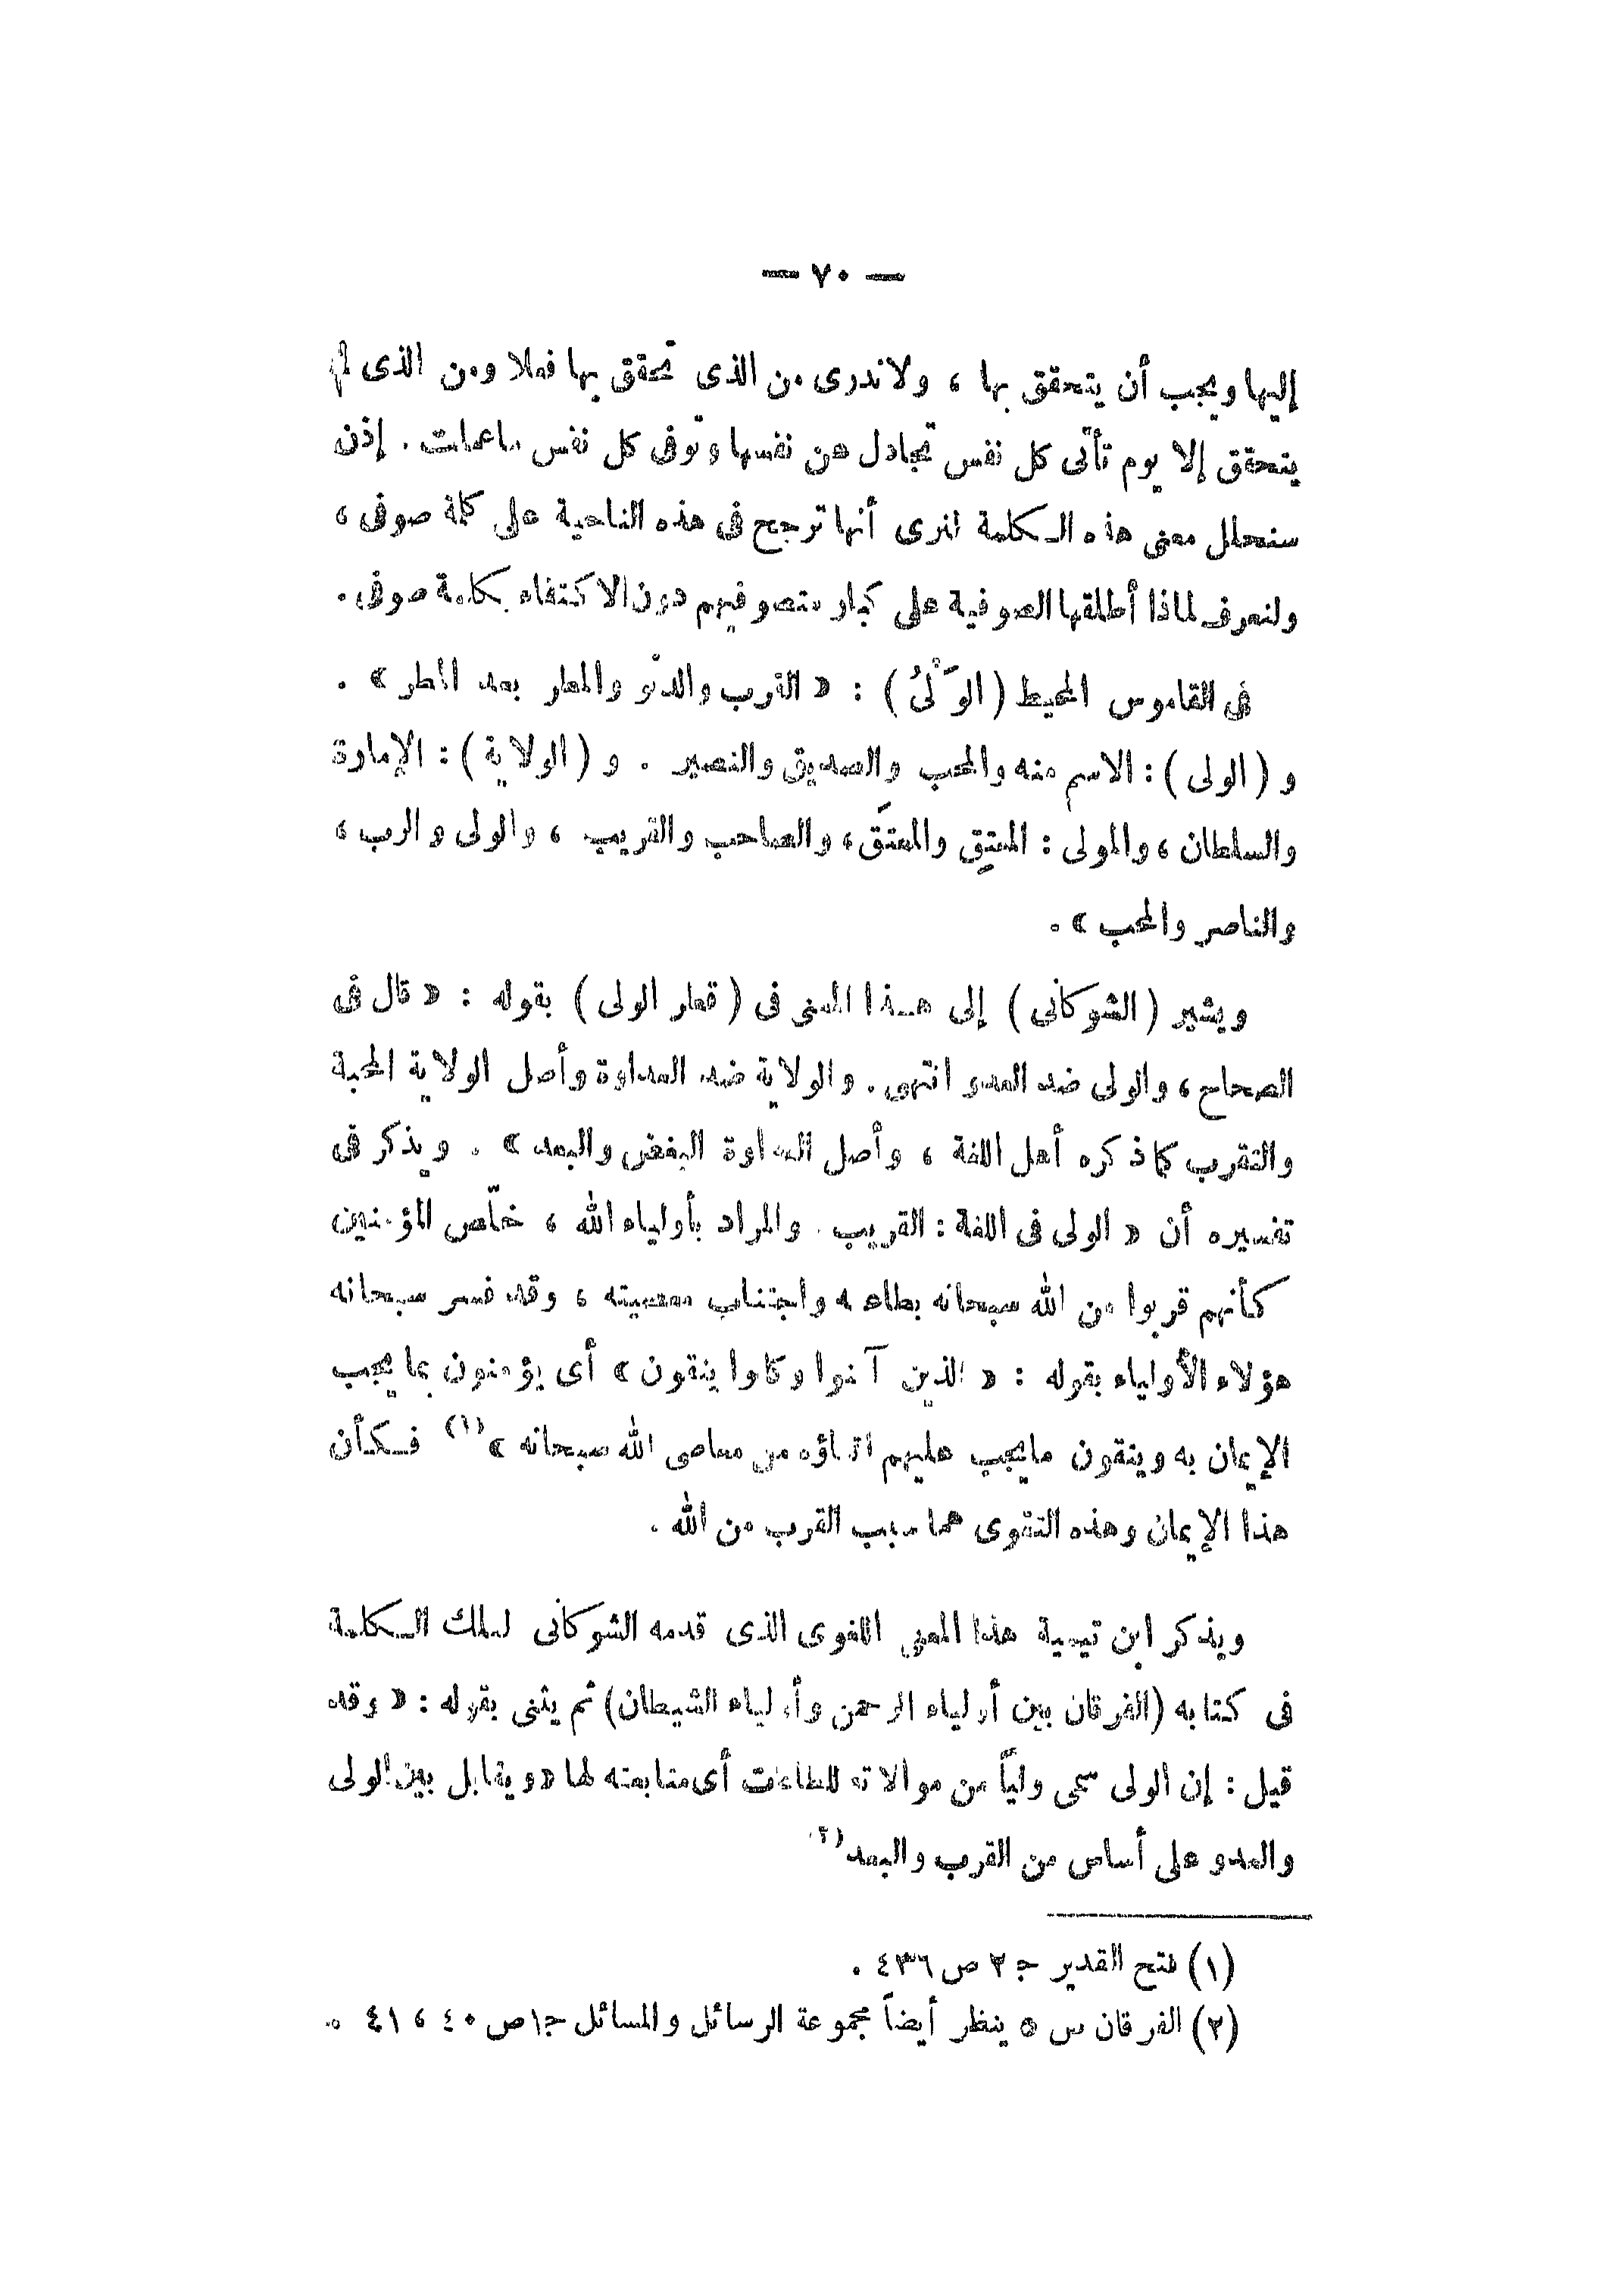 — ٧٠ —
إليها ويجب أن يتحقق بها ، ولا ندرى من الذى تحقق بها فعلا ومن الذى لم
يتحقق إلا يوم تأتى كل نفس تجادل عن نفسها وتوفى كل نفس ماعملت . إذن
سنحلل معنى هذه الـكلمة لنرى أنها ترجح فى هذه الناحية على كلمة صوفى ،
ولنعرف لماذا أطلقها الصوفية على كبار متصوفيهم دون الاكتفاء بكلمة صوفى .
فى القاموس المحيط ( الوَلْىُ ) : « القرب والدنو والمطر بعد المطر » .
و ( الولى ) : الاسم منه والمحب والصديق والنصير . و ( الولاية ) : الإمارة
والسلطان ، والمولى : المعتِق والمعتَق ، والصاحب والقريب ، والولى والرب ،
والناصر والمحب » .
ويشير ( الشوكانى ) إلى هـذا المعنى فى ( قطر الولى ) بقوله : « قال فى
الصحاح ، والولى ضد العدو انتهى . والولاية ضد العداوة وأصل الولاية المحبة
والتقرب كما ذكره أهل اللغة ، وأصل العداوة البغض والبعد » . ويذكر فى
تفسيره أن « الولى فى اللغة : القريب . والمراد بأولياء الله ، خلّص المؤمنين
كأنهم قربوا من الله سبحانه بطاعته واجتناب معصيته ، وقد فسر سبحانه
هؤلاء الأولياء بقوله : « الذين آمنوا وكانوا يتقون » أى يؤمنون بما يجب
الإيمان به ويتقون مايجب عليهم اتقاؤه من معاصى الله سبحانه »(١) فـكأن
هذا الإيمان وهذه التقوى هما سبب القرب من الله .
ويذكر ابن تيمية هذا المعنى اللغوى الذى قدمه الشوكانى لتلك الـكلمة
فى كتابه (الفرقان بين أولياء الرحمن وأولياء الشيطان) ثم يثنى بقوله : « وقد
قيل : إن الولى سمى ولياً من موالاته للطاعات أى متابعته لها « ويقابل بين الولى
والعدو على أساس من القرب والبعد(٢)
(١) فتح القدير جـ ٢ ص ٤٣٦ .
(٢) الفرقان ص ٥ ينظر أيضاً مجموعة الرسائل والمسائل جـ١ ص ٤٠ ، ٤١ .